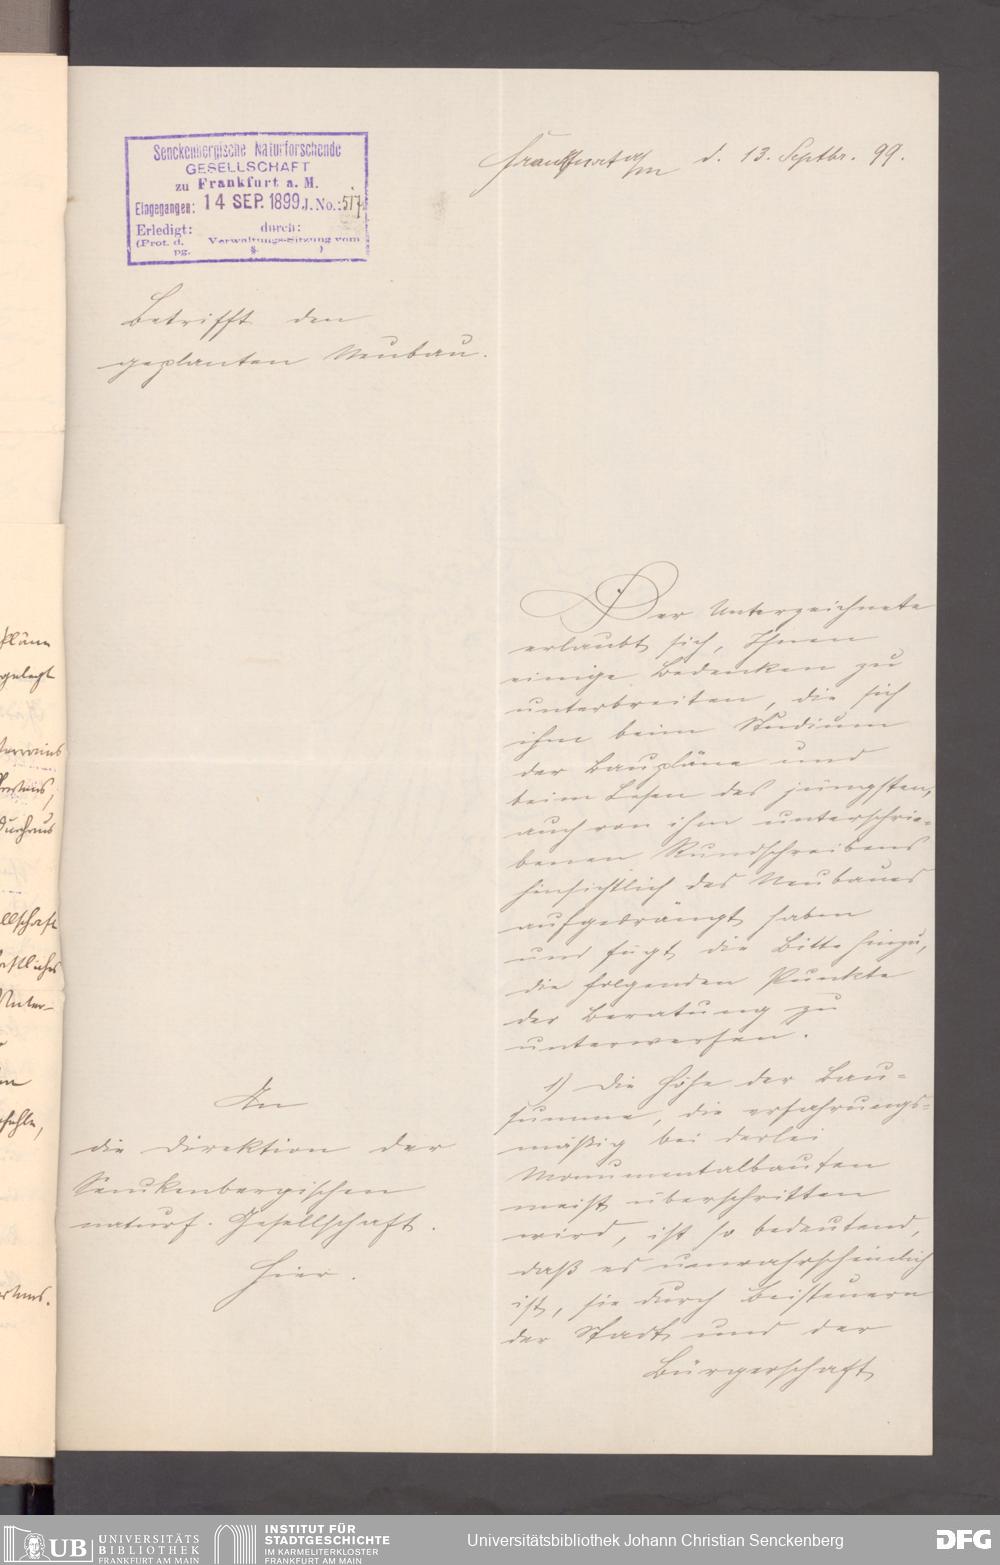 Senckenbergische Naturforschende
GESELLSCHAFT
zu Frankfurt a. M.
Eingegangen: 14 SEP. 1899 J. No.: 517
Erledigt: durch:
(Prot. d. Verwaltungs-Sitzung vom
pg. §. )
Frankfurt a/M d. 13. Septbr. 99.
Betrifft den
geplanten Neubau.
Der Unterzeichnete
erlaubt sich, Ihnen
einige Bedenken zu
unterbreiten, die sich
ihm beim Studium
der Baupläne und
beim Lesen des jüngsten,
auch von ihm unterschrie-
benen Rundschreibens
hinsichtlich des Neubaues
aufgedrängt haben
und fügt die Bitte hinzu,
die folgenden Punkte
der Beratung zu
unterwerfen.
1) Die Höhe der Bau-
summe, die erfahrungs-
mäßig bei derlei
Monumentalbauten
meist überschritten
wird, ist so bedeutend,
daß es unwahrscheinlich
ist, sie durch Beisteuern
der Stadt und der
Bürgerschaft
An
die Direktion der
Senckenbergischen
naturf. Gesellschaft.
Hier.
pläne
gelegt
durchaus
llschaft
Unter-
fehle,
UB UNIVERSITÄTS
BIBLIOTHEK
FRANKFURT AM MAIN
INSTITUT FÜR
STADTGESCHICHTE
IM KARMELITERKLOSTER
FRANKFURT AM MAIN
Universitätsbibliothek Johann Christian Senckenberg
DFG